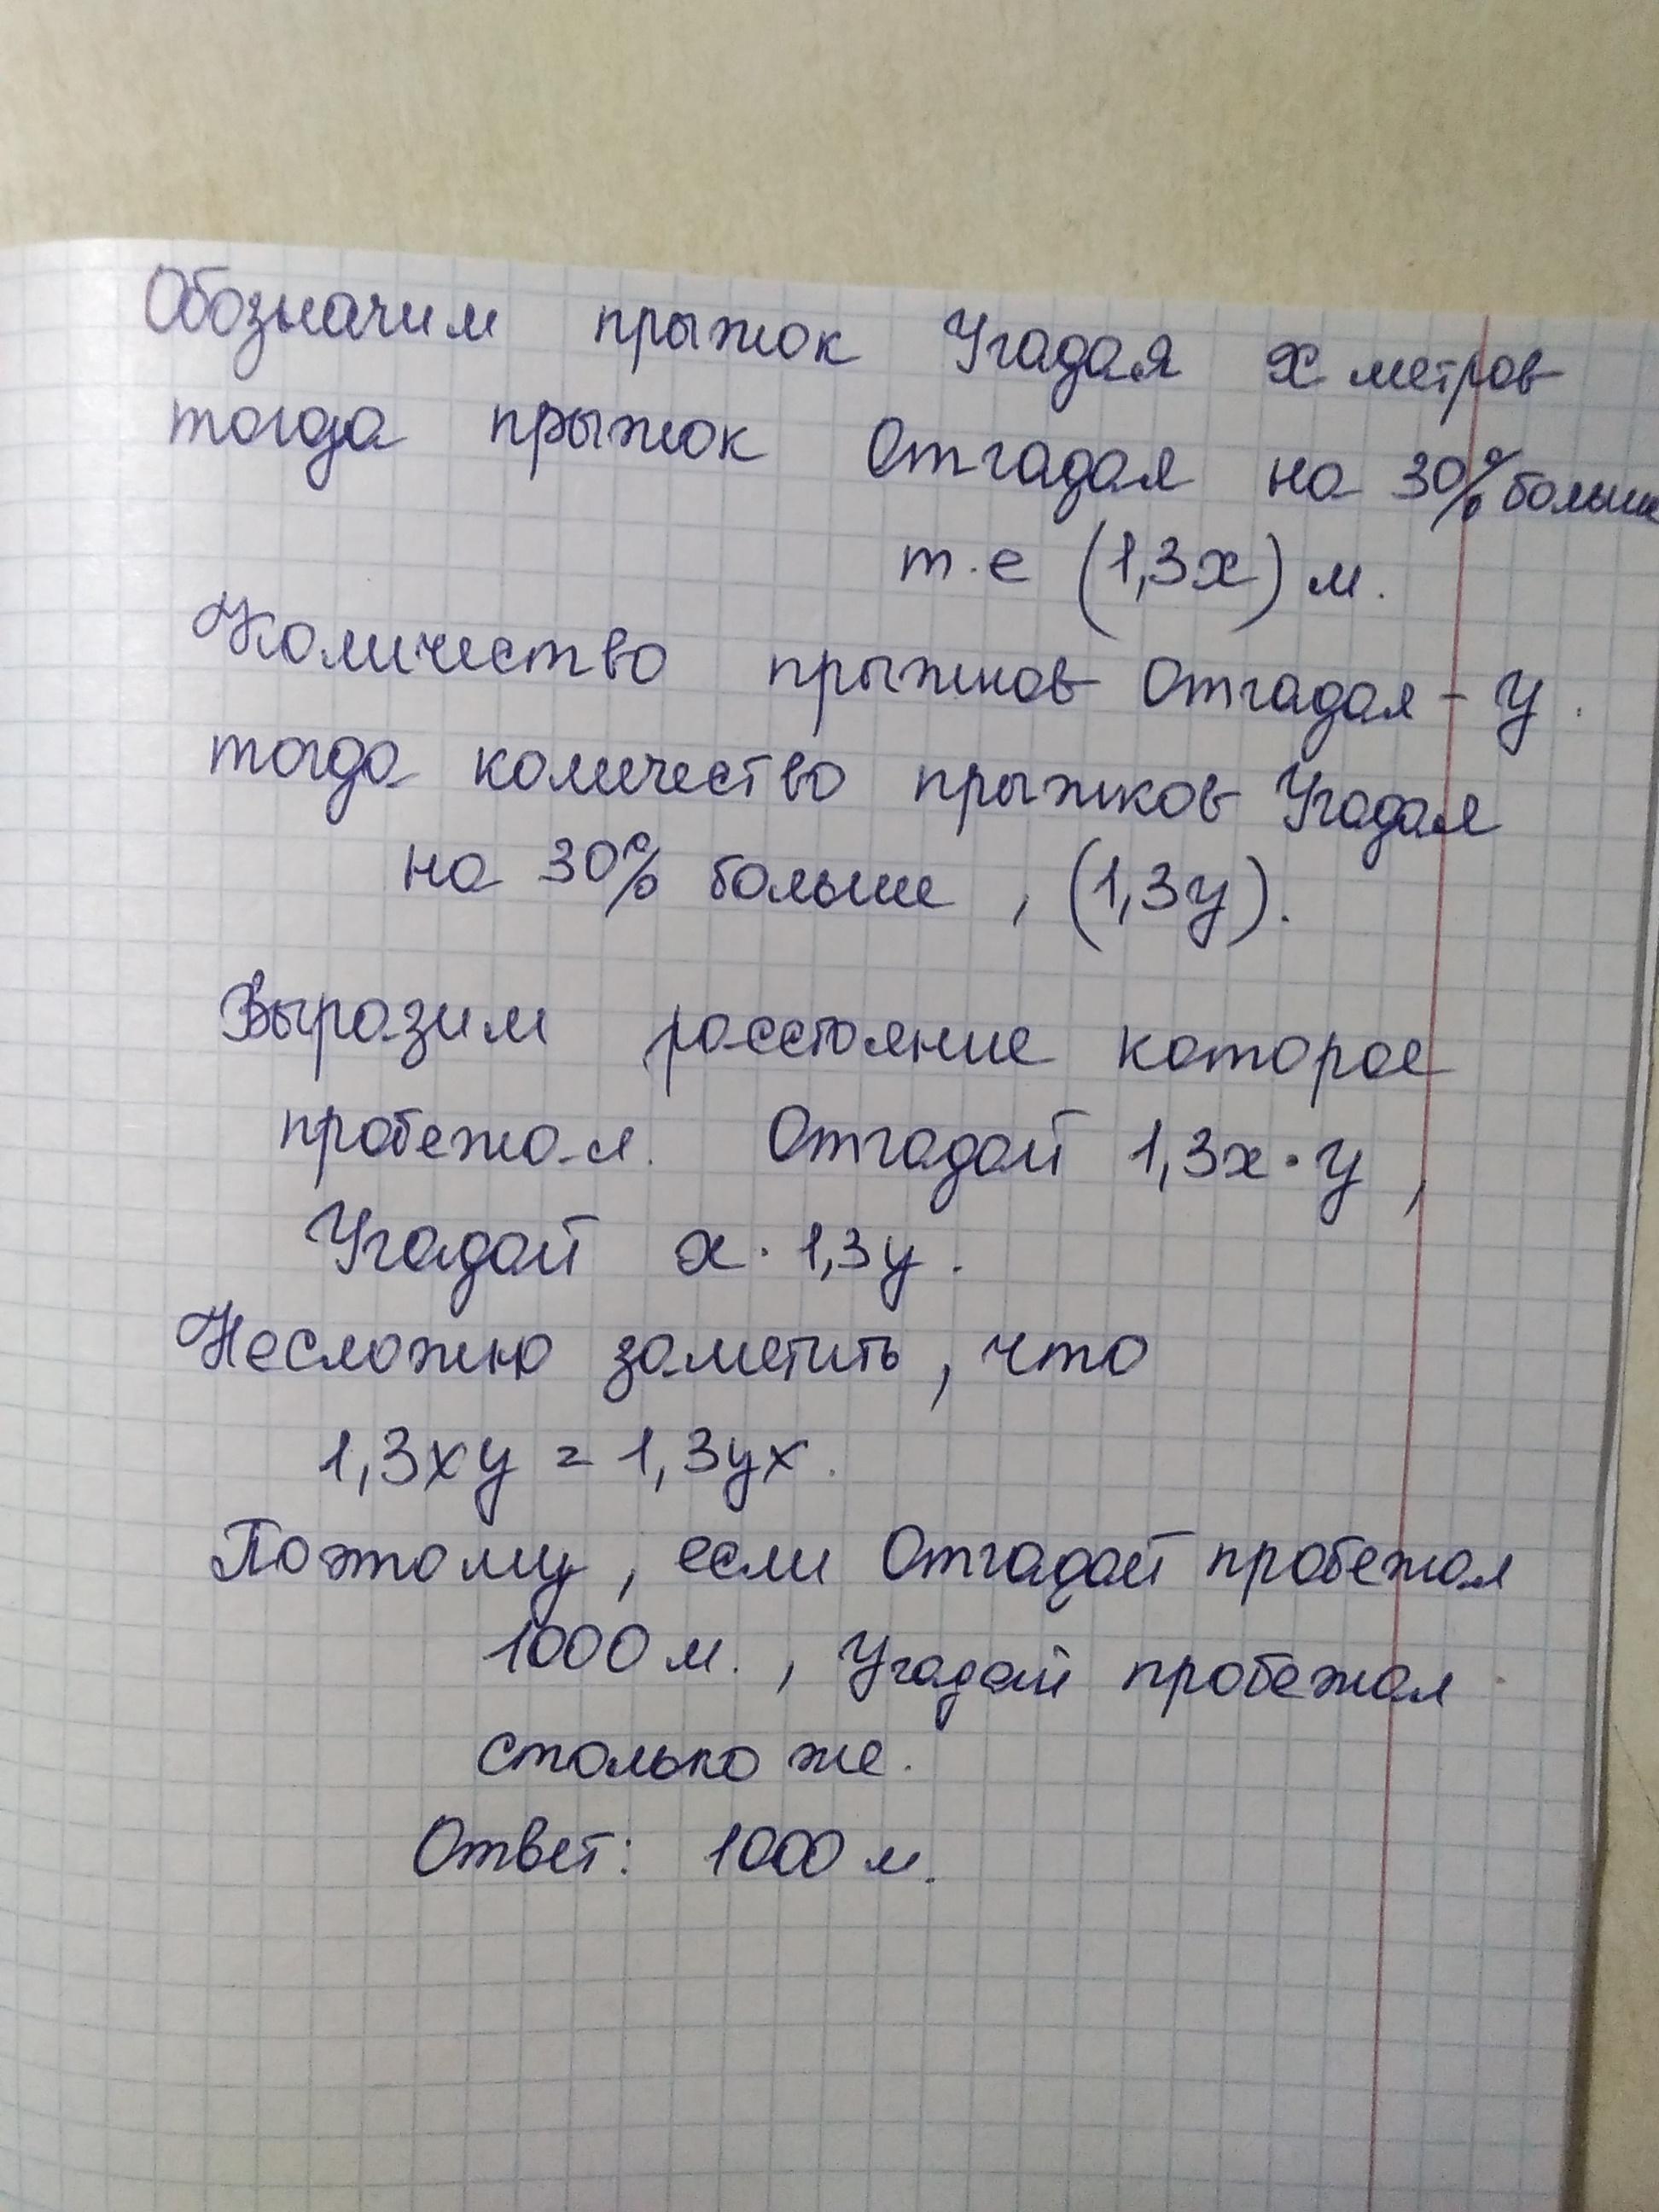 Обозначим прыжок Угадая x метров
тогда прыжок Отгадая на 30% больше
т.е (1,3x) м.
Количество прыжков Отгадая - y.
тогда количество прыжков Угадая
на 30% больше, (1,3y).
Выразим расстояние которое
пробежал. Отгадай 1,3x·y,
Угадай x·1,3y.
Несложно заметить, что
1,3xy = 1,3yx.
Поэтому, если Отгадай пробежал
1000 м., Угадай пробежал
столько же.
Ответ: 1000 м.